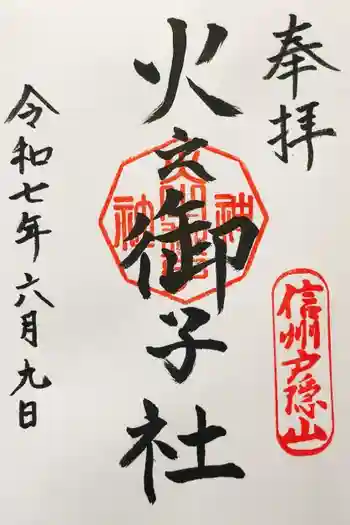 奉拝
信州戸隠山
火之御子社
令和七年六月九日